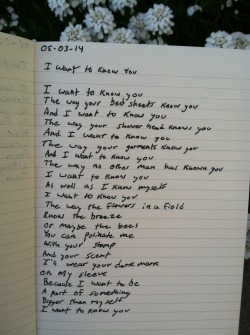 05-03-14
I Want to Know You
I want to know you
The way your bed sheets know you
And I want to know you
The way your shower head knows you
And I want to know you
The way your garments know you
And I want to know you
The way no other man has known you
I want to know you
As well as I know myself
I want to know you
The way the flowers in a field
Know the breeze
Or maybe the bees
You can polinate me
With your stamp
And your scent
I'll wear your dark mark
On my sleeve
Because I want to be
A part of something
Bigger than myself
I want to know you